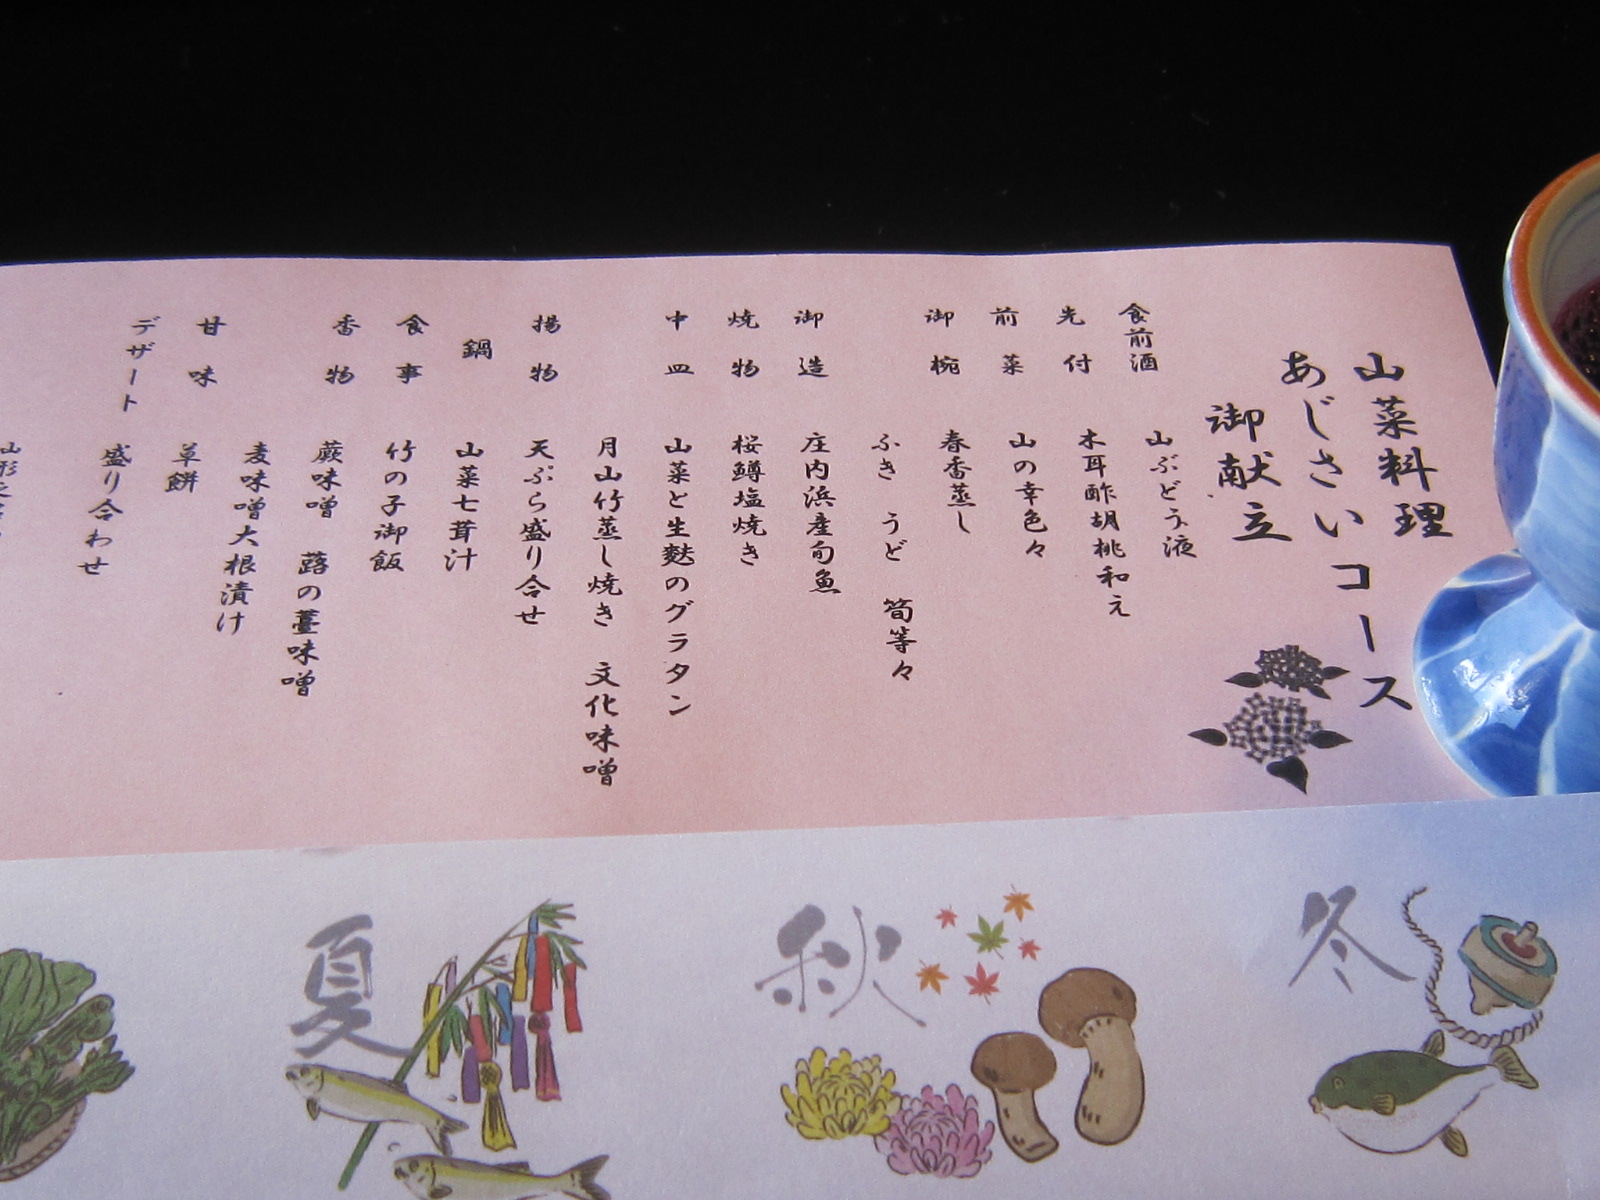 山菜料理
あじさいコース
御献立
食前酒 山ぶどう液
先付 木耳酢胡桃和え
前菜 山の幸色々
御椀 春香蒸し
ふき うど 筍等々
御造 庄内浜産旬魚
焼物 桜鱒塩焼き
中皿 山菜と生麩のグラタン
月山竹蒸し焼き 文化味噌
揚物 天ぷら盛り合せ
鍋 山菜七茸汁
食事 竹の子御飯
香物 蕨味噌 蕗の薹味噌
麦味噌大根漬け
甘味 草餅
デザート 盛り合わせ
山形
冬
秋
夏